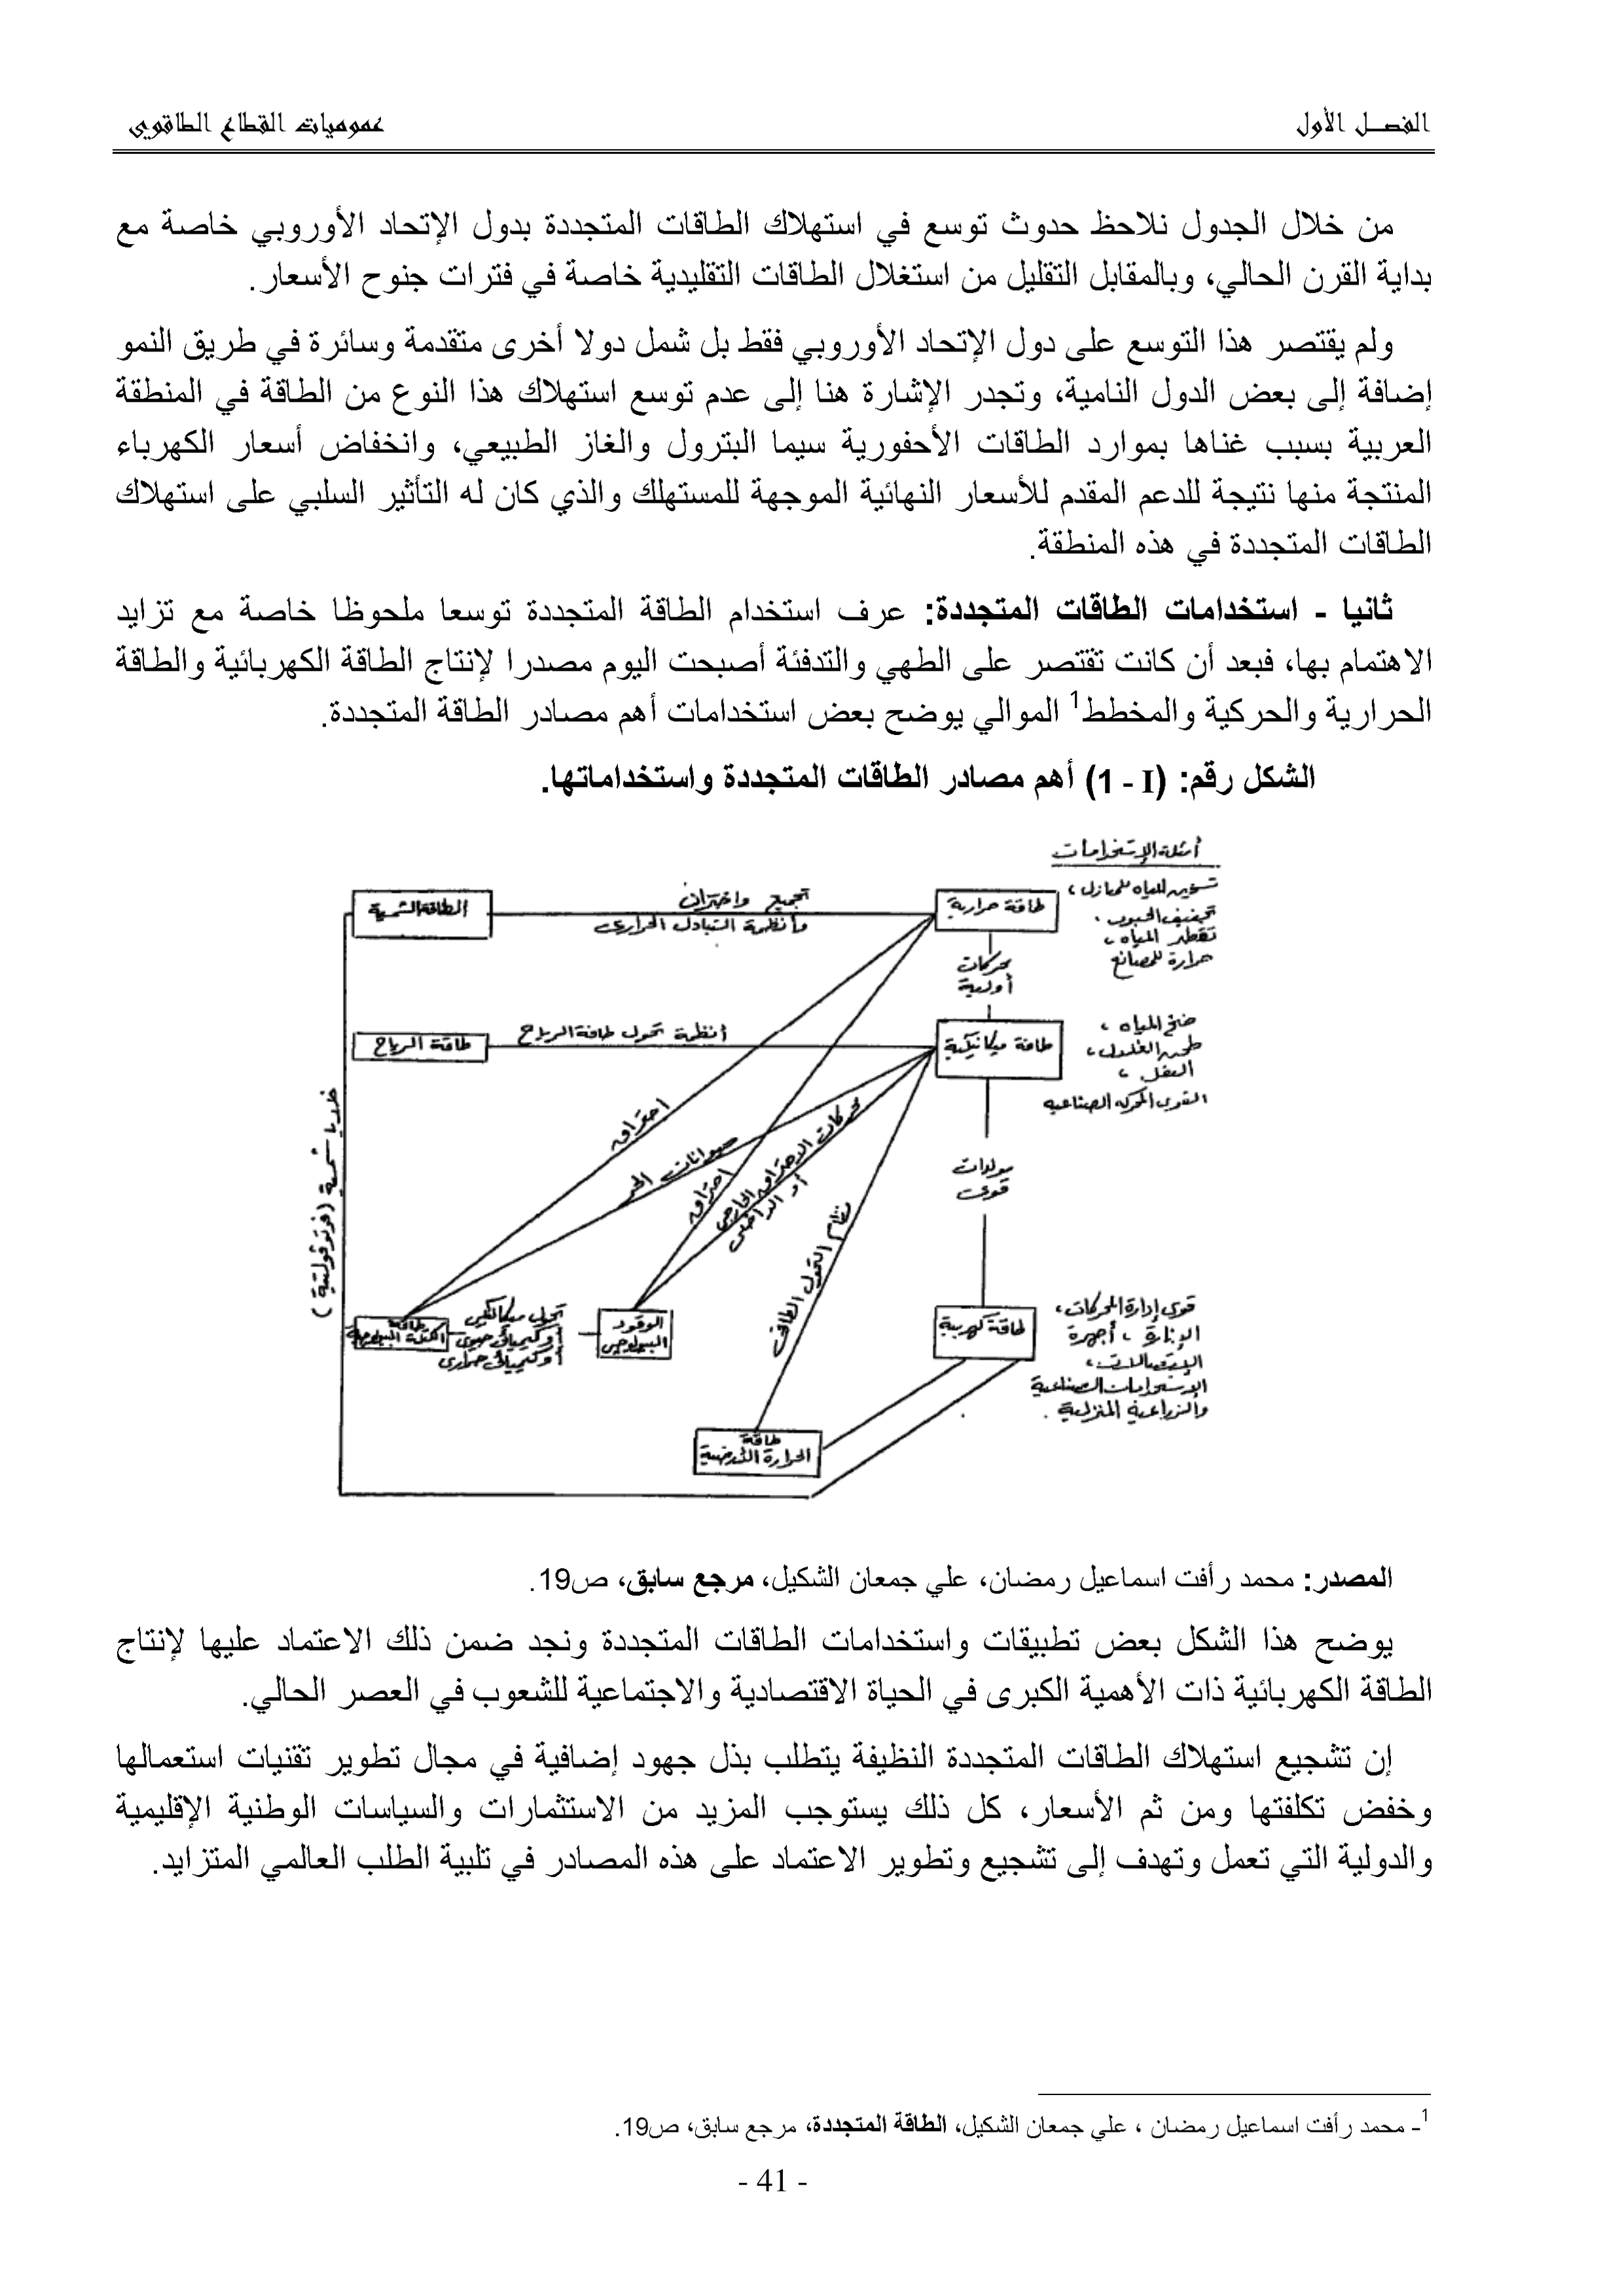 الفصل الأول
عموميات القطاع الطاقوي
من خلال الجدول نلاحظ حدوث توسع في استهلاك الطاقات المتجددة بدول الإتحاد الأوروبي خاصة مع
بداية القرن الحالي، وبالمقابل التقليل من استغلال الطاقات التقليدية خاصة في فترات جنوح الأسعار.
ولم يقتصر هذا التوسع على دول الإتحاد الأوروبي فقط بل شمل دولا أخرى متقدمة وسائرة في طريق النمو
إضافة إلى بعض الدول النامية، وتجدر الإشارة هنا إلى عدم توسع استهلاك هذا النوع من الطاقة في المنطقة
العربية بسبب غناها بموارد الطاقات الأحفورية سيما البترول والغاز الطبيعي، وانخفاض أسعار الكهرباء
المنتجة منها نتيجة للدعم المقدم للأسعار النهائية الموجهة للمستهلك والذي كان له التأثير السلبي على استهلاك
الطاقات المتجددة في هذه المنطقة.
ثانيا - استخدامات الطاقات المتجددة: عرف استخدام الطاقة المتجددة توسعا ملحوظا خاصة مع تزايد
الاهتمام بها، فبعد أن كانت تقتصر على الطهي والتدفئة أصبحت اليوم مصدرا لإنتاج الطاقة الكهربائية والطاقة
الحرارية والحركية والمخطط1 الموالي يوضح بعض استخدامات أهم مصادر الطاقة المتجددة.
الشكل رقم: (I - 1) أهم مصادر الطاقات المتجددة واستخداماتها.
أمثلة الإستخدامات
تسخين المياه للمنازل،
تجفيف الحبوب،
تقطير المياه،
حرارة للمصانع
طاقة حرارية
تجميع واختزان
وأنظمة التبادل الحرارى
الطاقة الشمسية
محركات
أولية
ضخ المياه،
طحن الغلال،
النقل،
القوى المحركة الصناعية
طاقة ميكانيكية
أنظمة تحول طاقة الرياح
طاقة الرياح
خلايا شمسية (فوتوفولتية)
احتراق
حيوانات الجر
احتراق
محركات الاحتراق الخارجى
أو الداخلى
نظام التحول الطاقى
مولدات
قوى
قوى إدارة المحركات،
الإنارة، أجهزة
الإتصالات،
الإستخدامات الصناعية
والزراعية المنزلية.
طاقة كهربية
الوقود
البيولوجى
تحول ميكانيكى
أو كيميائى حيوى
أو كيميائى حرارى
طاقة
الكتلة البيولوجية
طاقة
الحرارة الأرضية
المصدر: محمد رأفت اسماعيل رمضان، علي جمعان الشكيل، مرجع سابق، ص19.
يوضح هذا الشكل بعض تطبيقات واستخدامات الطاقات المتجددة ونجد ضمن ذلك الاعتماد عليها لإنتاج
الطاقة الكهربائية ذات الأهمية الكبرى في الحياة الاقتصادية والاجتماعية للشعوب في العصر الحالي.
إن تشجيع استهلاك الطاقات المتجددة النظيفة يتطلب بذل جهود إضافية في مجال تطوير تقنيات استعمالها
وخفض تكلفتها ومن ثم الأسعار، كل ذلك يستوجب المزيد من الاستثمارات والسياسات الوطنية الإقليمية
والدولية التي تعمل وتهدف إلى تشجيع وتطوير الاعتماد على هذه المصادر في تلبية الطلب العالمي المتزايد.
1- محمد رأفت اسماعيل رمضان ، علي جمعان الشكيل، الطاقة المتجددة، مرجع سابق، ص19.
- 41 -